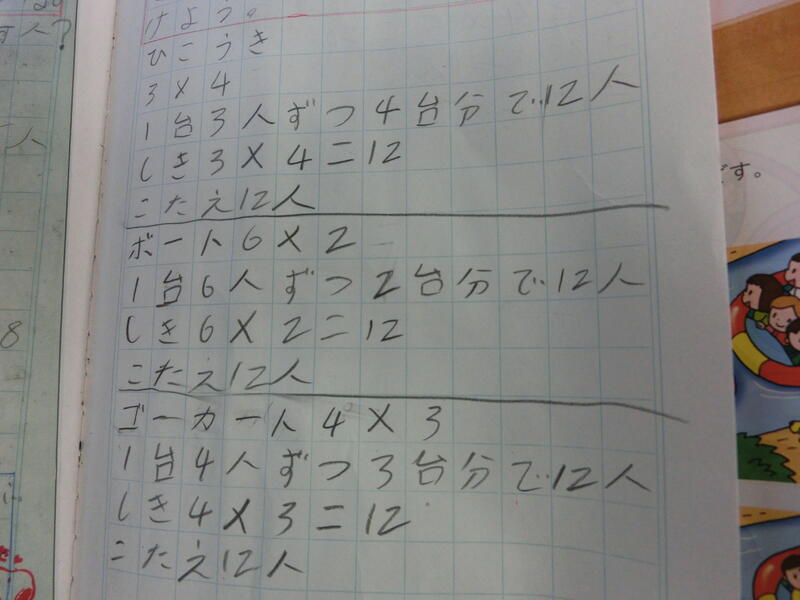 けよう。
ひこうき
3×4
1台3人ずつ4台分で12人
しき3×4=12
こたえ12人
ボート6×2
1台6人ずつ2台分で12人
しき6×2=12
こたえ12人
ゴーカート4×3
1台4人ずつ3台分で12人
しき4×3=12
こたえ12人
人?
人
8
です。